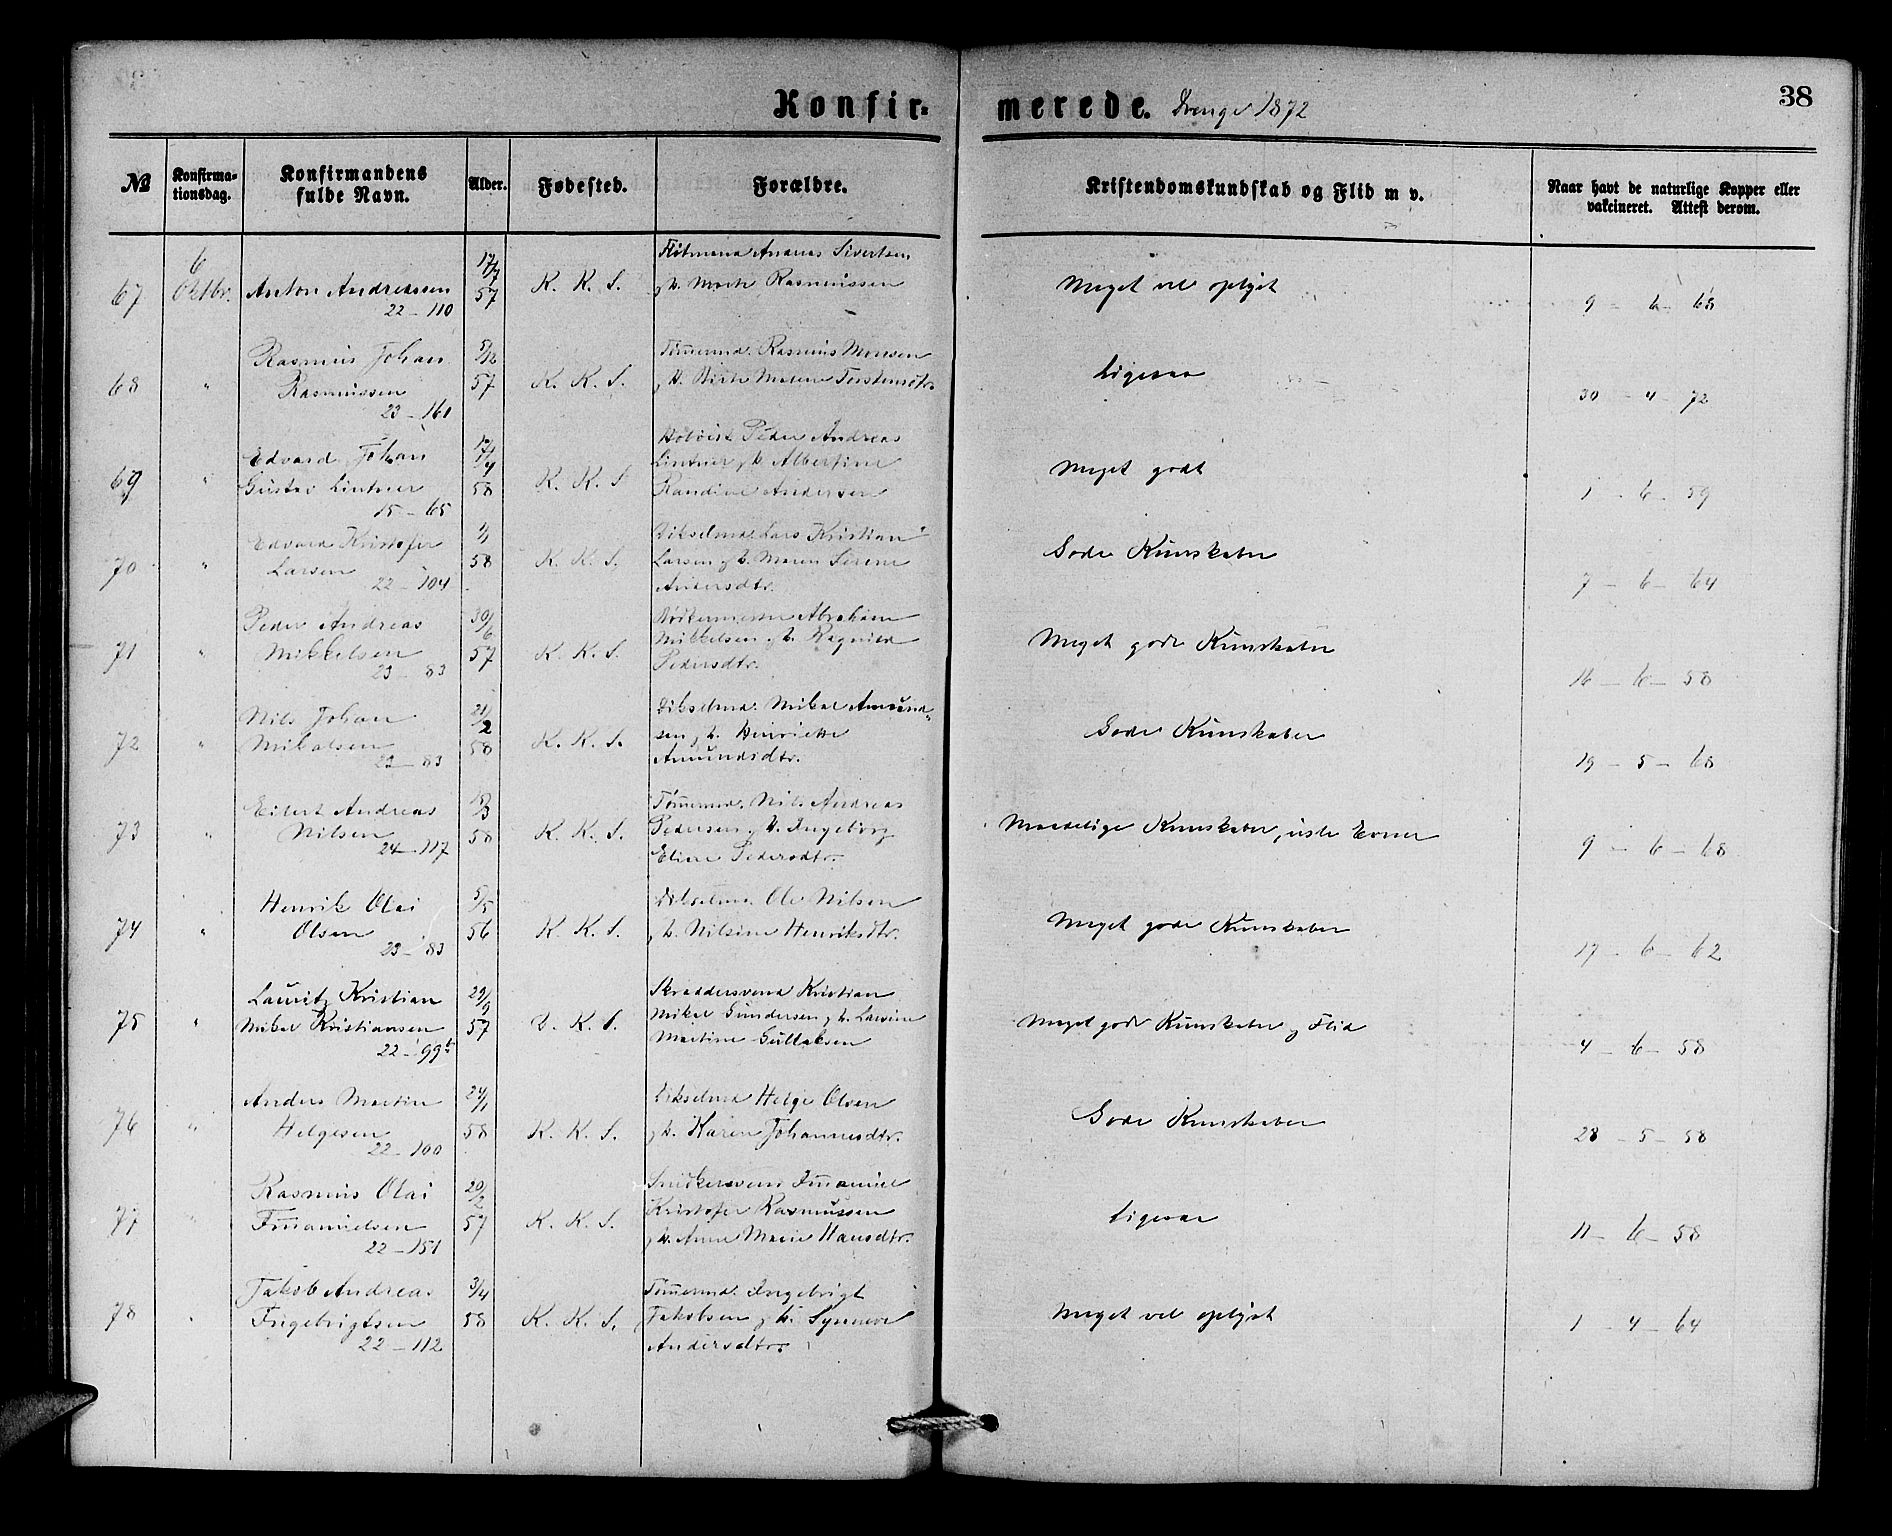 Konfirmerede. Drenge 1872
38
№ Konfirmationsdag. Konfirmandens fulde Navn. Alder. Fødested. Forældre. Kristendomskundskab og Flid m v. Naar havt de naturlige Kopper eller vakcineret. Attest derom.
67 6 Oktbr. Anton Andreassen 22-110 17/7 57 K. K. S. Andreas Sivertsen
og h. Marte Rasmussen Meget vel oplyst 9 - 6 - 68
68 " Rasmus Johan
Rasmussen 23-160 5/12 57 K. K. S. Tømermd. Rasmus Monsen
og h. Birte Malene Torstensdtr. Ligesaa 30 - 4 - 72
69 " Edvard Johan
Gustav Lintner 15-65 17/4 58 K. K. S Peder Andreas
Lintner og h. Albertine
Randine Andersen Meget godt 1 - 6 - 59
70 " Edvard Kristofer
Larsen 22-104 1/1 58 K. K. S. Lars Kristian
Larsen og h. Maren Serene
Andersdtr. Gode Kunskaber 7 - 6 - 64
71 " Peder Andreas
Mikkelsen 23-83 30/6 57 K. K. S. Bødkermester Abraham
Mikkelsen og h. Ragnild
Pedersdtr. Meget gode Kunskaber 16 - 6 - 58
72 " Nils Johan
Mikalsen 23-83 21/2 58 K. K. S. Mikal Amund-
sen og h. Henriette
Amundsdtr. Gode Kunskaber 19 - 5 - 68
73 " Eilert Andreas
Nilsen 24-117 58 K. K. S. Tømermd. Nils Andreas
Pedersen og h. Ingeborg
Eline Pedersdtr. Maadelige Kunskaber, Evner 9 - 6 - 68
74 " Henrik Olai
Olsen 23-83 5/5 56 K. K. S. Ole Nilsen
og h. Nilsine Henriksdtr. Meget gode Kunskaber 17 - 6 - 62
75 " Lauritz Kristian
Mikal Kristiansen 22-99b 29/9 57 D. K. S. Skræddersvend Kristian
Mikal Gundersen og h. Larsine
Martine Gullaksen Meget gode Kunskaber og Flid 4 - 6 - 58
76 " Anders Martin
Helgesen 22-100 24/1 58 K. K. S. Helge Olsen
og h. Karen Johannesdtr. Gode Kunskaber 28 - 5 - 58
77 " Rasmus Olai
Imanielsen 22-151 20/2 57 K. K. S. Snidkersvend Imaniel
Kristofer Rasmussen
og h. Anne Marie Hansdtr. Ligesaa 11 - 6 - 58
78 " Jakob Andreas
Ingebrigtsen 22-112 3/4 58 K. K. S. Tømermd. Ingebrigt
Jakobsen og h. Synneve
Andersdtr. Meget vel oplyst 1 - 4 - 64